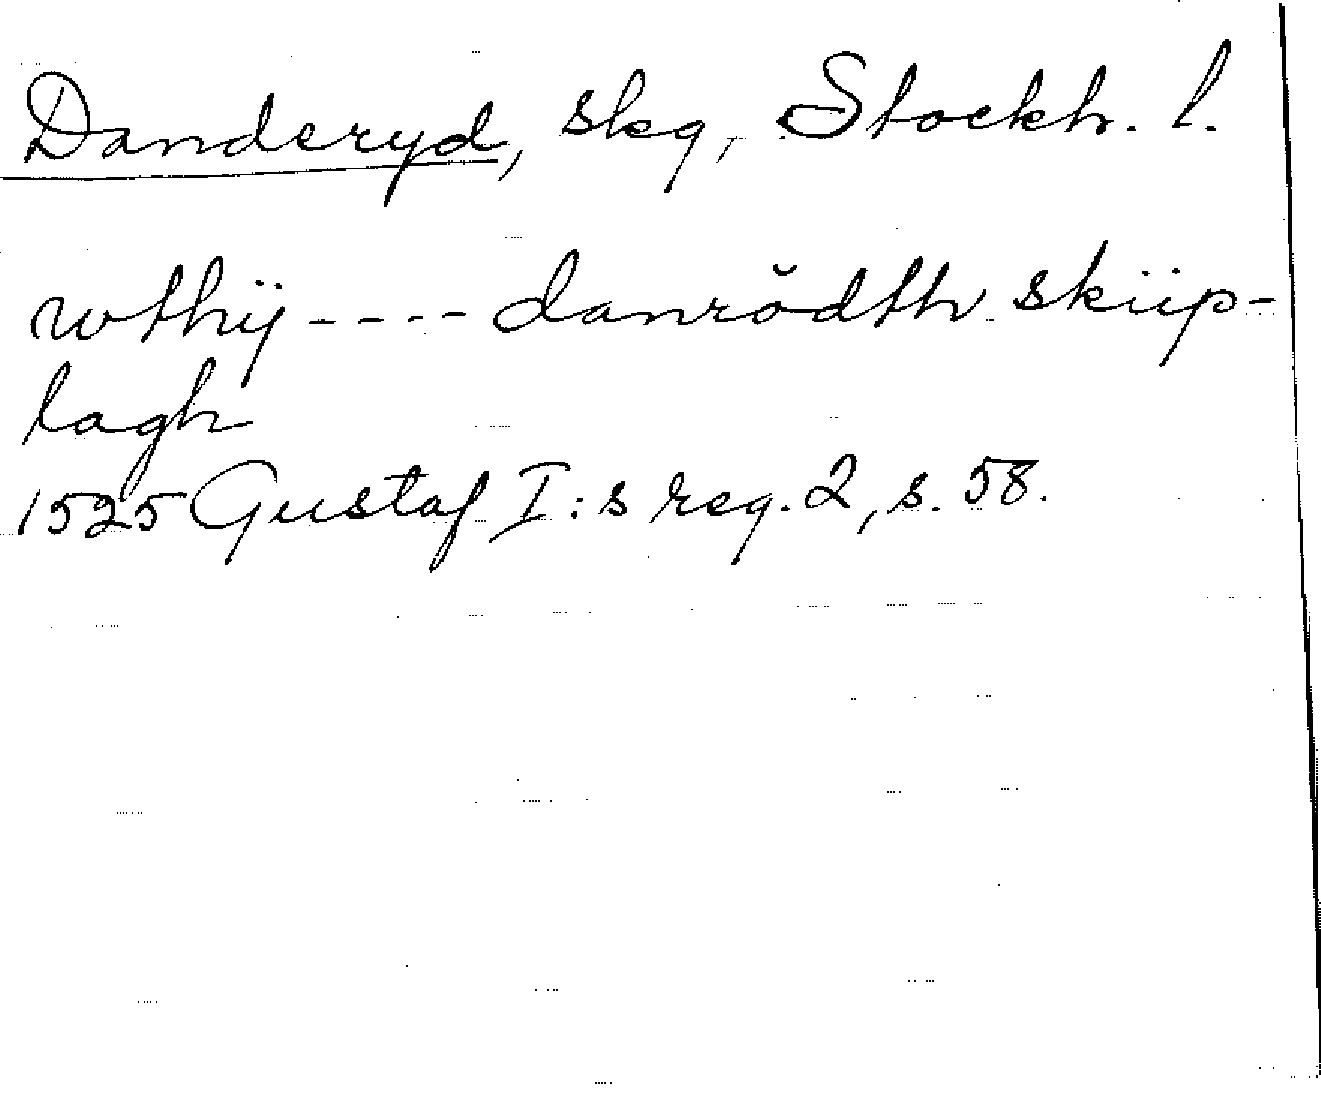 Danderyd, skg, Stockh. l.
wthij ---- danrŏdth skiip-
lagh
1525 Gustaf I:s reg. 2, s. 58.